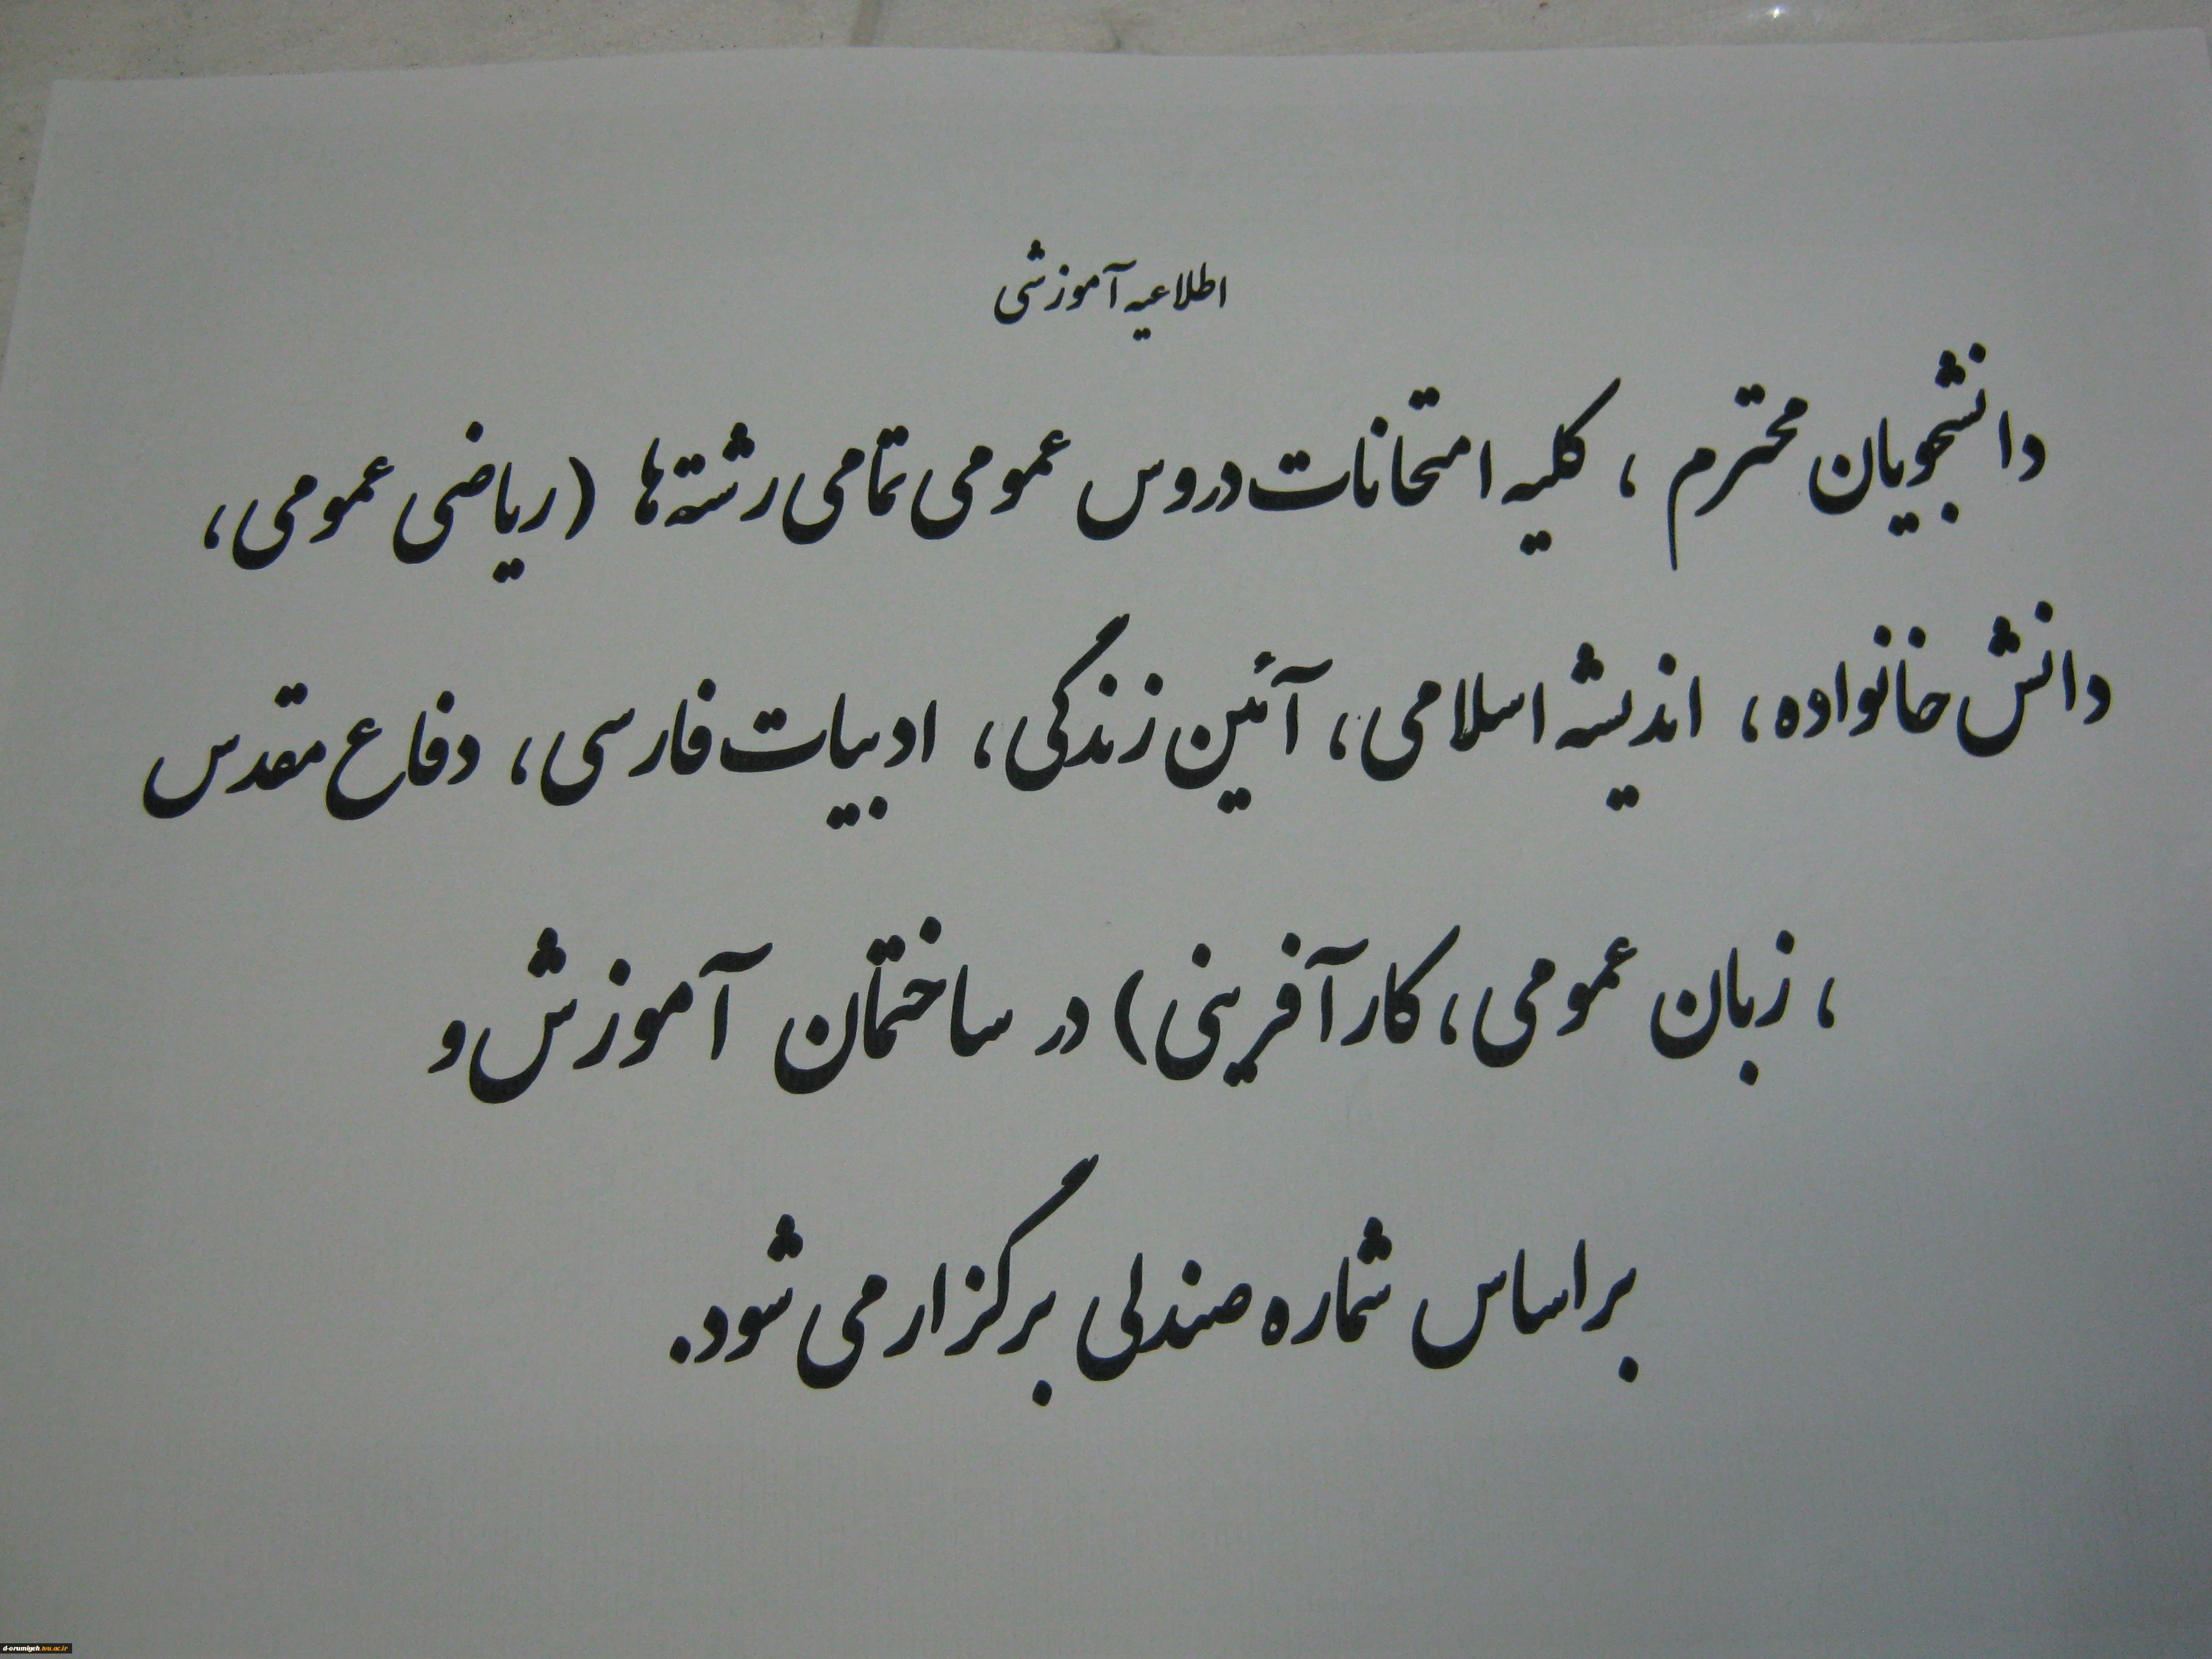 اطلاعیه آموزشی
دانشجویان محترم ، کلیه امتحانات دروس عمومی تمامی رشته ها (ریاضی عمومی،
دانش خانواده، اندیشه اسلامی، آئین زندگی، ادبیات فارسی، دفاع مقدس
، زبان عمومی، کارآفرینی) در ساختمان آموزش و
براساس شماره صندلی برگزار می شود.
d-orumiyeh.tvu.ac.ir